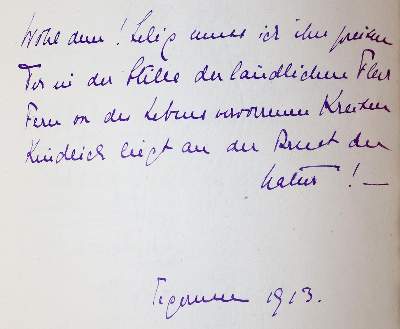 Wohl dem! Selig muss ich ihn preisen
Der in der Stille der ländlichen Flur
Fern von des Lebens verworrenen Kreisen
Kindlich liegt an der Brust der
Natur! –
Tegernsee 1913.